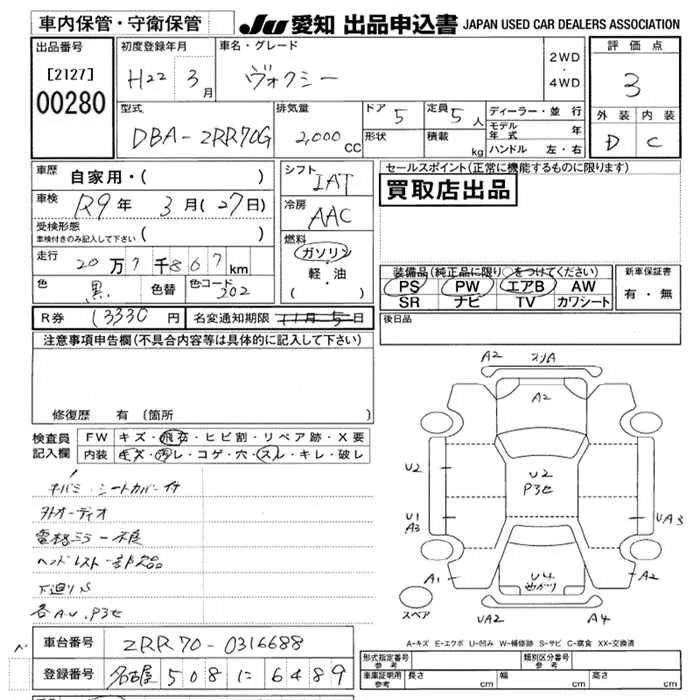 車内保管・守衛保管
JU 愛知 出品申込書 JAPAN USED CAR DEALERS ASSOCIATION
出品番号
[2127]
00280
初度登録年月
H22 3月
車名・グレード
ヴォクシー
2WD
・
4WD
評価点
3
外装 内装
D C
型式
DBA-ZRR70G
排気量
2,000 CC
ドア 5
形状
定員 5人
積載 kg
ディーラー・並行
モデル年式 年
ハンドル 左・右
車歴
自家用・( )
車検 R9年 3月(27日)
受検形態
車検付きのみ記入して下さい ( )
走行 20万7千867km
色 黒 色替 色コード 302
シフト
IAT
冷房
AAC
燃料
ガソリン
・
軽・油
( )
セールスポイント(正常に機能するものに限ります)
買取店出品
装備品(純正品に限り○をつけてください)
PS PW エアB AW
SR ナビ TV カワシート
新車保証書
有・無
R券 13330円 名変通知期限 11月5日
後日品
注意事項申告欄(不具合内容等は具体的に記入して下さい)
修復歴 有 〔箇所 〕
検査員記入欄
FW キズ・飛石・ヒビ割・リペア跡・X要
内装 キズ・汚レ・コゲ・穴・スレ・キレ・破レ
キバミ・シートカバー付
外オーディオ
電格ミラー不良
ヘッドレスト一部欠品
下廻りS
各A.U.P3セ
A2
A2
U2
U2
P3セ
U1
A3
UA3
A1
A2
U4
UA2
A4
スペア
A-キズ E-エクボ U-凹み W-補修跡 S-サビ C-腐食 XX-交換済
車台番号 ZRR70-0316688
登録番号 名古屋 508 に 6489
形式指定番号 参考
類別区分番号 参考
車庫証明用 参考 長さ cm 幅 cm 高さ cm